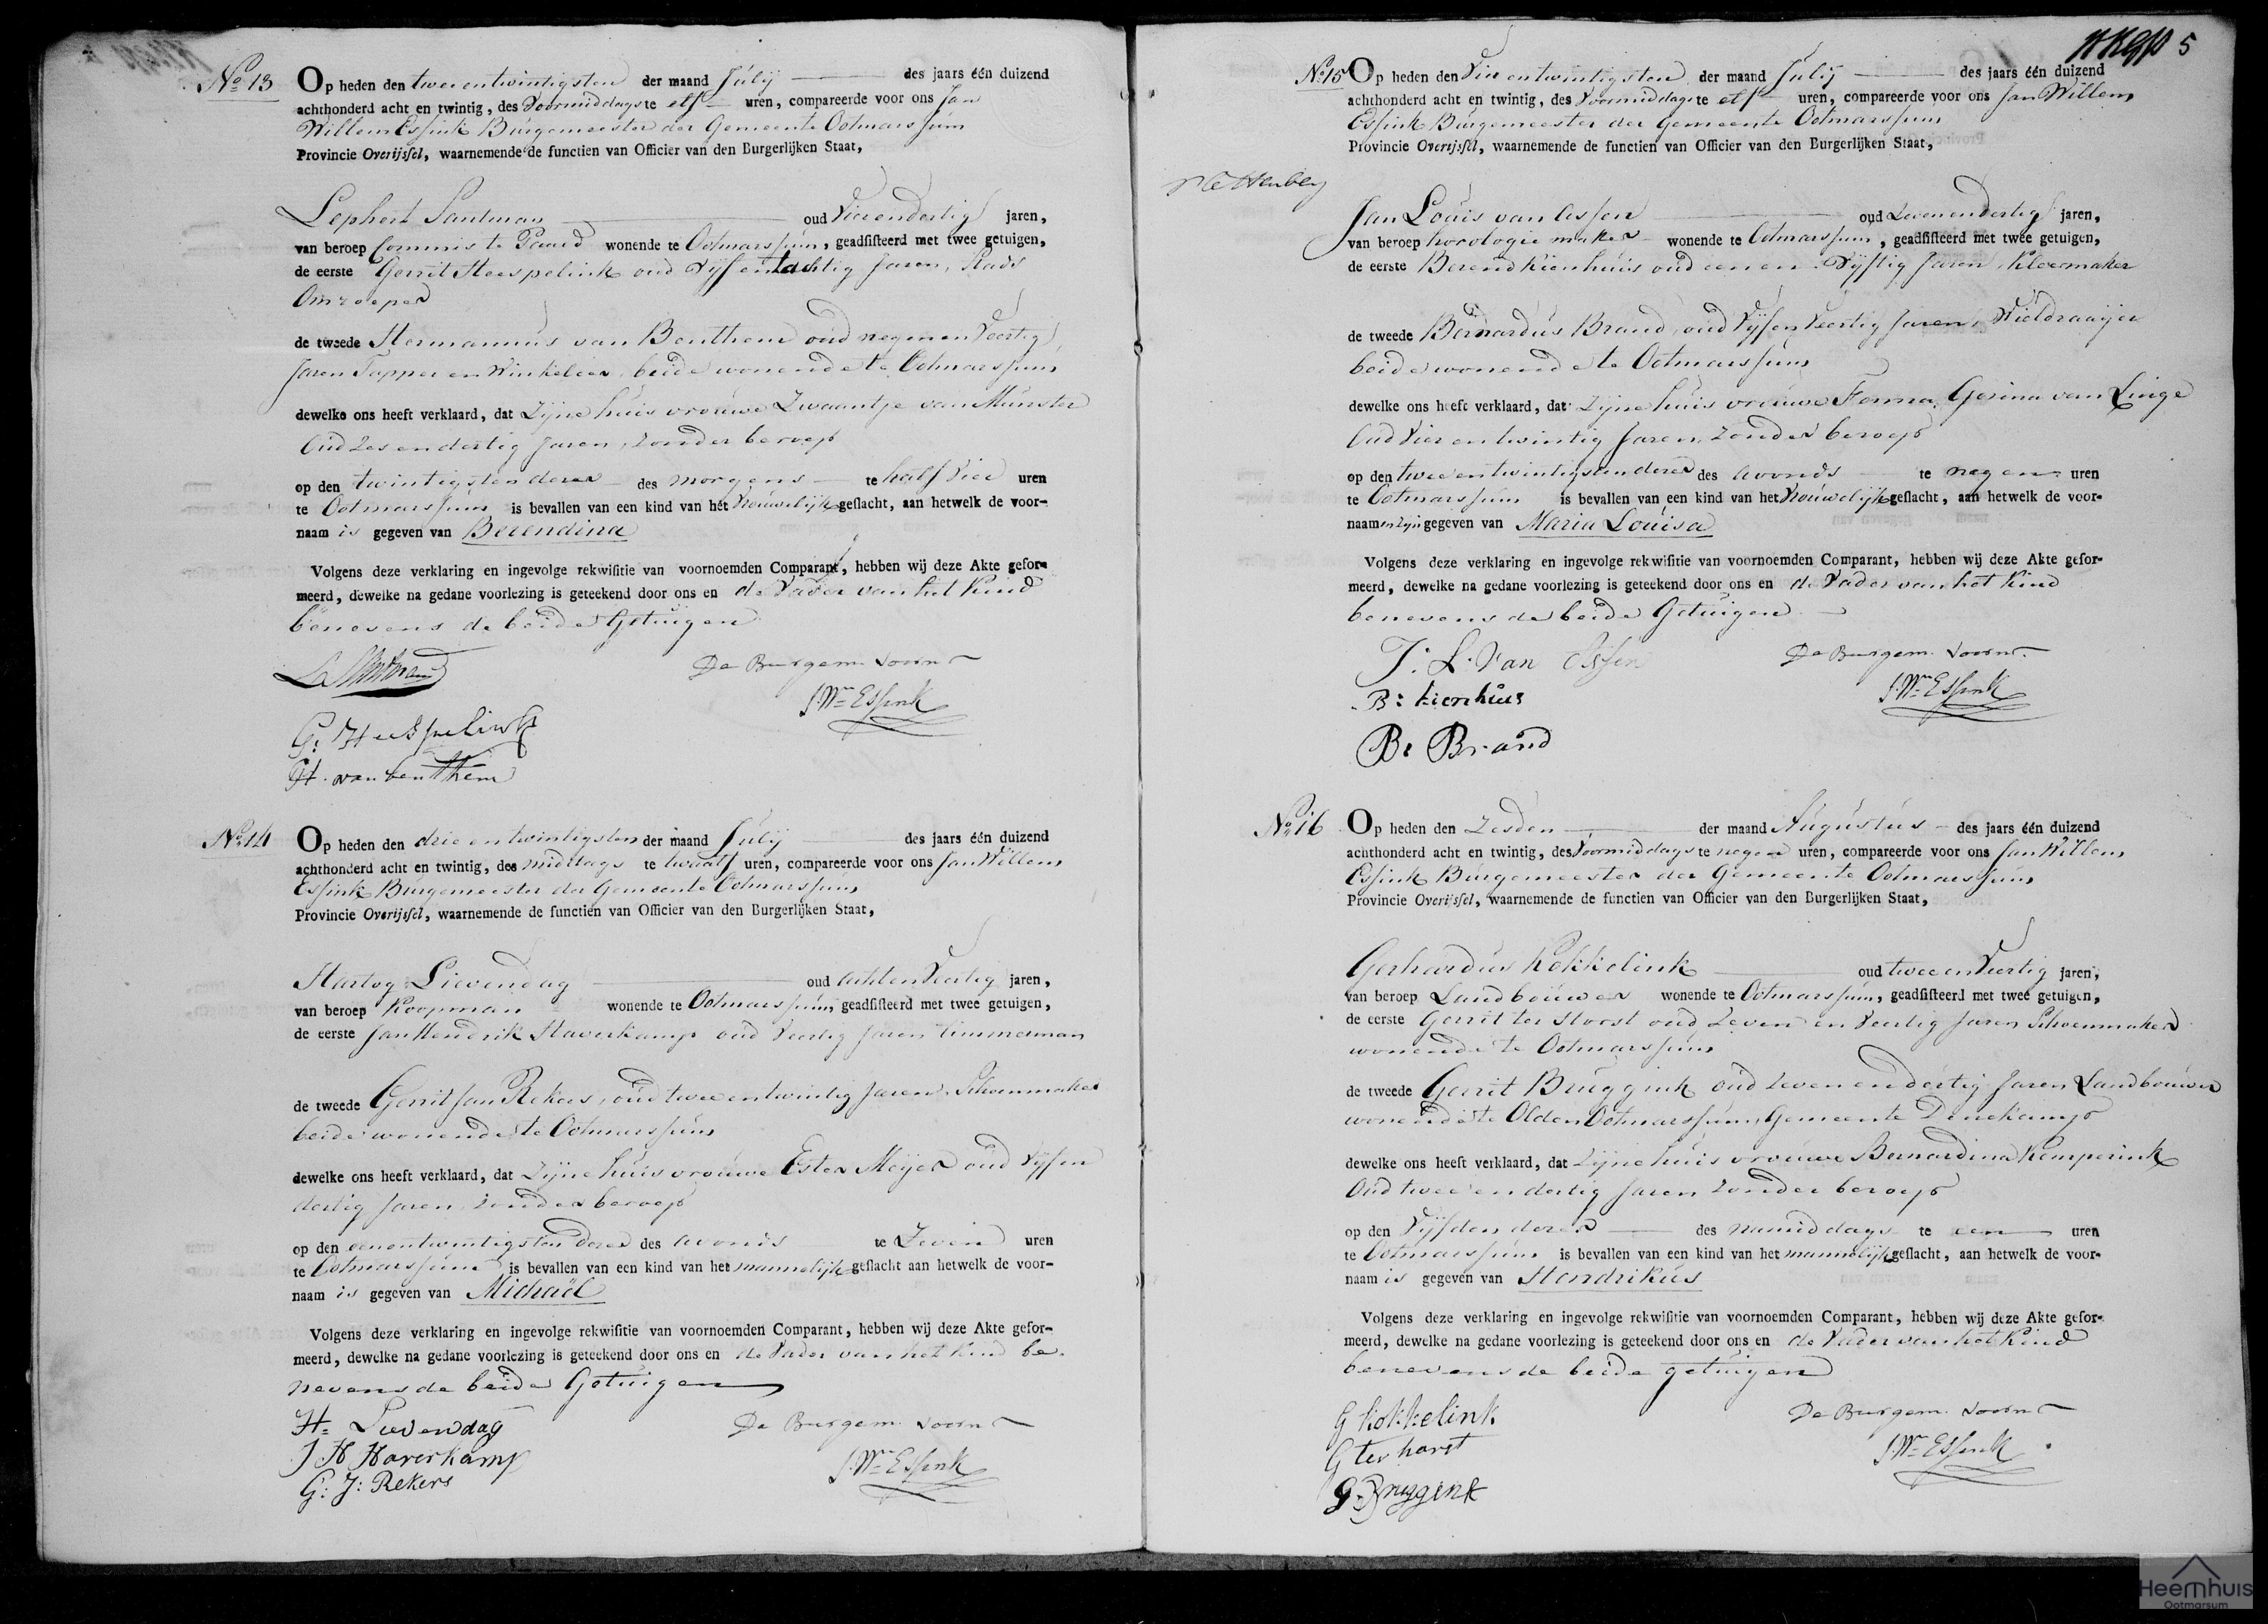 No 13 Op heden den twee en twintigsten der maand Julij des jaars één duizend
achthonderd acht en twintig, des Voormiddags te elf uren, compareerde voor ons Jan
Willem Essink Burgemeester der Gemeente Ootmarssum
Provincie Overijssel, waarnemende de functien van Officier van den Burgerlijken Staat,
Lephert Santman oud Vier en dertig jaren,
van beroep Commis te Paard wonende te Ootmarssum, geadsisteerd met twee getuigen,
de eerste Gerrit Heespelink oud Vijf en tachtig Jaren, Stads
Omroeper
de tweede Hermannus van Benthem oud negen en Veertig
Jaren Tapper en Winkelier, beide wonende te Ootmarssum
dewelke ons heeft verklaard, dat Zijne huisvrouwe Zwaantje van Munster
Oud Zes en dertig Jaren, zonder beroep
op den twintigsten dezer des morgens te half Vier uren
te Ootmarssum is bevallen van een kind van het Vrouwelijk geslacht, aan hetwelk de voor-
naam is gegeven van Berendina
Volgens deze verklaring en ingevolge rekwisitie van voornoemden Comparant, hebben wij deze Akte gefor-
meerd, dewelke na gedane voorlezing is geteekend door ons en de Vader van het Kind
benevens de beide Getuigen
L Santman
De Burgem. voorn
J. Wm Essink
G: Heespelink
H. van benthem
No 14 Op heden den drie en twintigsten der maand Julij des jaars één duizend
achthonderd acht en twintig, des middags te twaalf uren, compareerde voor ons Jan Willem
Essink Burgemeester der Gemeente Ootmarssum
Provincie Overijssel, waarnemende de functien van Officier van den Burgerlijken Staat,
Hartog Lievendag oud acht en Veertig jaren,
van beroep Koopman wonende te Ootmarssum, geadsisteerd met twee getuigen,
de eerste Jan Hendrik Haverkamp oud Veertig Jaren Timmerman
de tweede Gerrit Jan Rekers, oud twee en twintig Jaren, Schoenmaker
beide wonende te Ootmarssum
dewelke ons heeft verklaard, dat Zijne huisvrouwe Ester Meijer oud Vijf en
dertig Jaren, zonder beroep
op den een en twintigsten dezer des avonds te Zeven uren
te Ootmarssum is bevallen van een kind van het mannelijk geslacht aan hetwelk de voor-
naam is gegeven van Michaël
Volgens deze verklaring en ingevolge rekwisitie van voornoemden Comparant, hebben wij deze Akte gefor-
meerd, dewelke na gedane voorlezing is geteekend door ons en de Vader van het Kind be-
nevens de beide Getuigen
H= Lievendag
De Burgem. voorn
J H Haverkamp
J. Wm Essink
G: J: Rekers
5
No 15 Op heden den Vier en twintigsten der maand Julij des jaars één duizend
achthonderd acht en twintig, des Voormiddags te elf uren, compareerde voor ons Jan Willem
Essink Burgemeester der Gemeente Ootmarssum
Provincie Overijssel, waarnemende de functien van Officier van den Burgerlijken Staat,
Jan Louis van Assen oud Zeven en dertig jaren,
van beroep horologie maker wonende te Ootmarssum, geadsisteerd met twee getuigen,
de eerste Berend Kienhuis oud een en Vijftig Jaren, Kleermaker
de tweede Bernardus Brand, oud Vijf en Veertig Jaren, Wieldraaijer
beide wonende te Ootmarssum
dewelke ons heeft verklaard, dat Zijne huisvrouwe Fenna Gesina van Linge
Oud Vier en twintig Jaren, zonder beroep
op den twee en twintigsten dezer des avonds te negen uren
te Ootmarssum is bevallen van een kind van het Vrouwelijk geslacht, aan hetwelk de voor-
naam en zijn gegeven van Maria Louisa
Volgens deze verklaring en ingevolge rekwisitie van voornoemden Comparant, hebben wij deze Akte gefor-
meerd, dewelke na gedane voorlezing is geteekend door ons en de Vader van het Kind
benevens de beide Getuigen
J: L. Van Assen
De Burgem. voorn.
J. Wm Essink
B: kienhuis
B: Brand
No 16 Op heden den Zesden der maand Augustus des jaars één duizend
achthonderd acht en twintig, des Voormiddags te negen uren, compareerde voor ons Jan Willem
Essink Burgemeester der Gemeente Ootmarssum
Provincie Overijssel, waarnemende de functien van Officier van den Burgerlijken Staat,
Gerhardus Kokkelink oud twee en Veertig jaren,
van beroep Landbouwer wonende te Ootmarssum, geadsisteerd met twee getuigen,
de eerste Gerrit ter Horst oud Zeven en Veertig Jaren Schoenmaker
wonende te Ootmarssum
de tweede Gerrit Bruggink oud Zeven en dertig Jaren Landbouwer
wonende te Olden Ootmarssum, Gemeente Denekamp
dewelke ons heeft verklaard, dat Zijne huisvrouwe Bernardina Kemperink
Oud twee en dertig Jaren zonder beroep
op den Vijfden dezer des namiddags te een uren
te Ootmarssum is bevallen van een kind van het mannelijk geslacht, aan hetwelk de voor-
naam is gegeven van Hendrikus
Volgens deze verklaring en ingevolge rekwisitie van voornoemden Comparant, hebben wij deze Akte gefor-
meerd, dewelke na gedane voorlezing is geteekend door ons en de Vader van het Kind
benevens de beide getuigen
G kokkelink
De Burgem. voorn
G ter horst
J. Wm Essink
G. Bruggink
Heemhuis
Ootmarsum